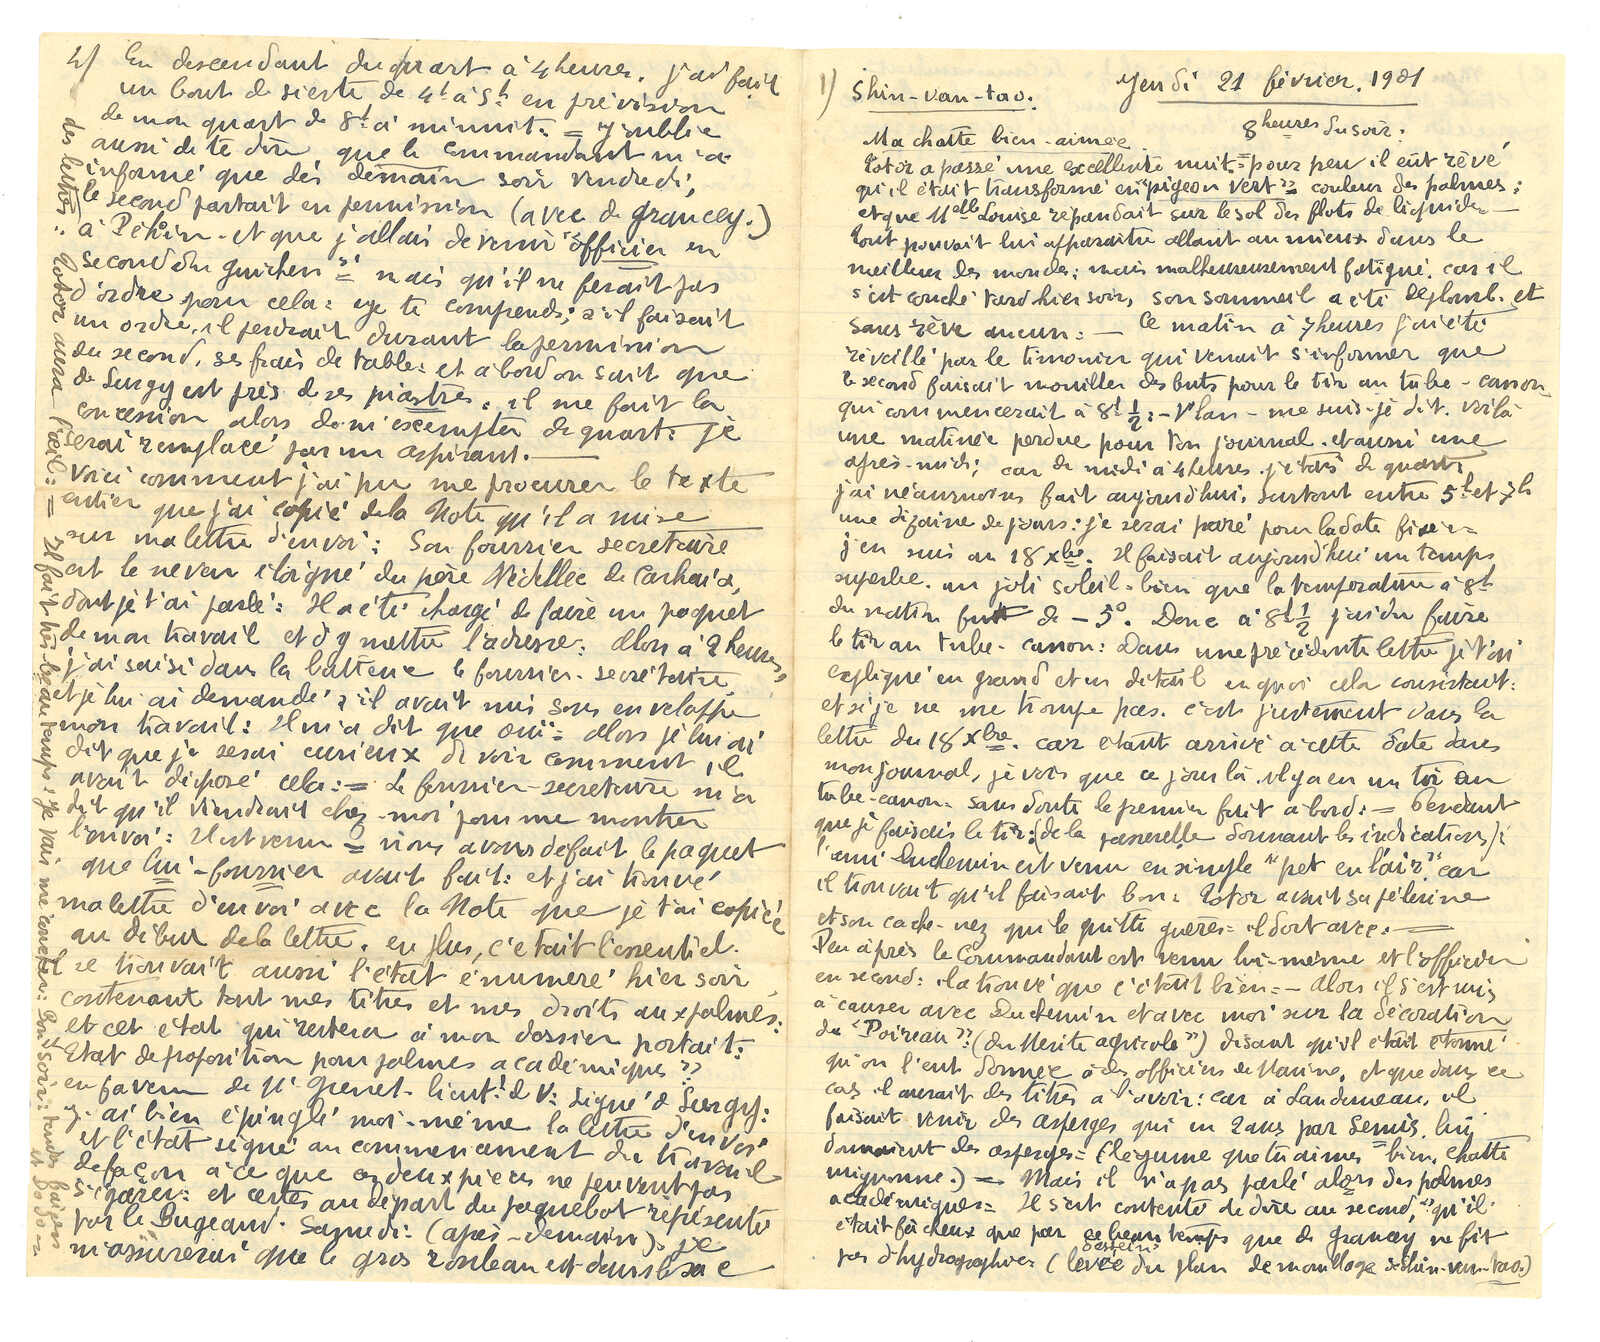 1) Shin-van-tao. Jeudi 21 février. 1901
8 heures du soir:
Ma chatte bien-aimée.
Totor a passé une excellente nuit = pour peu il eût rêvé
qu'il était transformé en "pigeon vert" couleur des palmes;
et que Melle Louise répandait sur le sol des flots de liquide. —
Tout pouvait lui apparaître allant au mieux dans le
meilleur des mondes; mais malheureusement fatigué. car il
s'est couché tard hier soir, son sommeil a été de plomb. et
sans rêve aucun: — Ce matin à 7 heures j'ai été
réveillé par le timonier qui venait s'informer que
le second faisait mouiller des buts pour le tir au tube-canon,
qui commencerait à 8h 1/2: - Vlan - me suis-je dit. voilà
une matinée perdue pour ton journal. et aussi une
après-midi; car de midi à 4 heures. j'étais de quart:
j'ai néanmoins fait aujourd'hui. surtout entre 5h et 7h
une dizaine de jours: je serai paré pour la date fixée =
j'en suis au 18 Xbre. Il faisait aujourd'hui un temps
superbe. un joli soleil. bien que la température à 8h
du matin fut de -5°. Donc à 8h 1/2 j'ai du faire
le tir au tube-canon: Dans une précédente lettre je t'ai
expliqué en grand et en détail en quoi cela consistait:
et si je ne me trompe pas. c'est justement dans la
lettre du 18 Xbre. car étant arrivé à cette date dans
mon journal, je vois que ce jour là. il y a eu un tir au
tube-canon. sans doute le premier fait à bord: = Pendant
que je faisais le tir: (de la passerelle donnant les indications):
l'ami Duchemin est venu en simple "pet en l'air". car
il trouvait qu'il faisait bon: Totor avait sa pélerine
et son cache-nez qu'il ne quitte guères = il dort avec: —
Peu après le Commandant est venu lui-même et l'officier
en second: il a trouvé que c'était bien = - Alors il s'est mis
à causer avec Duchemin et avec moi sur la décoration
du "Poireau": (du Mérite agricole") disant qu'il était étonné
qu'on l'eut donnée à des officiers de Marine. et que dans ce
cas il aurait des titres à l'avoir: car à Landerneau. il
faisait venir des asperges qui en 2 ans par semis. lui
donnaient des asperges = (légume que tu aimes = bien. chatte
mignonne.) = Mais il n'a pas parlé alors des palmes
académiques = Il s'est contenté de dire au second, "qu'il
était fâcheux que par ce beau temps que de Grancey ne fit
pas d'hydrographie = (levée dessein du plan de mouillage de Shin-van-tao.)
4) En descendant du quart à 4 heures. j'ai fait
un bout de sieste de 4h à 5h en prévision
de mon quart de 8h à minuit: = J'oublie
aussi de te dire que le commandant m'a
informé que dès demain soir vendredi,
le second partait en permission (avec de Grancey.)
à Pékin - et que j'allais devenir "officier en
second du Guichen" = mais qu'il ne ferait pas
d'ordre pour cela: = je te comprends; s'il faisait
un ordre. il perdrait durant la permission
du second. ses frais de table: et à bord on sait que
de Surgy est près de ses piastres. il me fait la
concession alors de m'exempter de quart: je
serai remplacé par un aspirant. —
Voici comment j'ai pu me procurer le texte
entier que j'ai copié de la Note qu'il a mise
sur ma lettre d'envoi: Son fourrier secrétaire
est le neveu éloigné du père Nédellec de Carhaix,
dont je t'ai parlé: Il a été chargé de faire un paquet
de mon travail et d'y mettre l'adresse: Alors à 2 heures,
j'ai saisi dans la batterie le fourrier-secrétaire,
et je lui ai demandé, s'il avait mis sous enveloppe
mon travail: Il m'a dit que oui = Alors je lui ai
dit que je serai curieux de voir comment il
avait disposé cela: = Le fourrier-secrétaire m'a
dit qu'il viendrait chez-moi pour me montrer
l'envoi: Il est venu = nous avons défait le paquet
que lui-fourrier avait fait: et j'ai trouvé
ma lettre d'envoi avec la Note que je t'ai copiée
au début de la lettre. en plus, c'était l'essentiel.
Il se trouvait aussi l'état énuméré hier soir
contenant tout mes titres et mes droits aux palmes:
et cet état qui restera à mon dossier portait:
Etat de proposition pour palmes académiques"
en faveur de M. Grenet. lieut: de V: signé de Surgy:
J'ai bien épinglé moi-même la lettre d'envoi
et l'état signé au commencement du travail
de façon à ce que ces deux pièces ne peuvent pas
s'égarer: et certes au départ du paquebot représenté
par le Bugeaud. Samedi: (après-demain). je
m'assurerai que le gros rouleau est dans le sac
des lettres:: Totor aura l'oeil: = Il fait très-beau temps: je vais me coucher: Bonsoir: tendres baisers